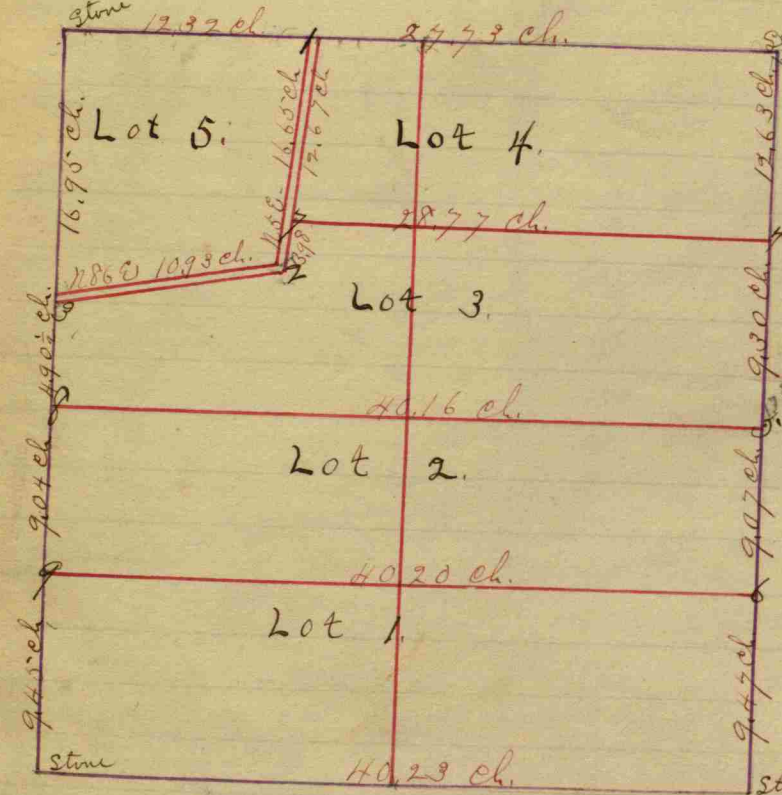 Stone
12.32 ch.
27.73 ch.
16.95 ch.
Lot 5.
N5E 16.65 ch
12.67 ch
Lot 4.
12.63 ch.
28.77 ch.
N86E 10.93 ch.
3.98
Lot 3.
4.90½ ch.
9.30 ch.
40.16 ch.
Lot 2.
9.04 ch
9.07 ch.
40.20 ch.
Lot 1.
9.45 ch
9.47 ch
Stone
40.23 ch.
St